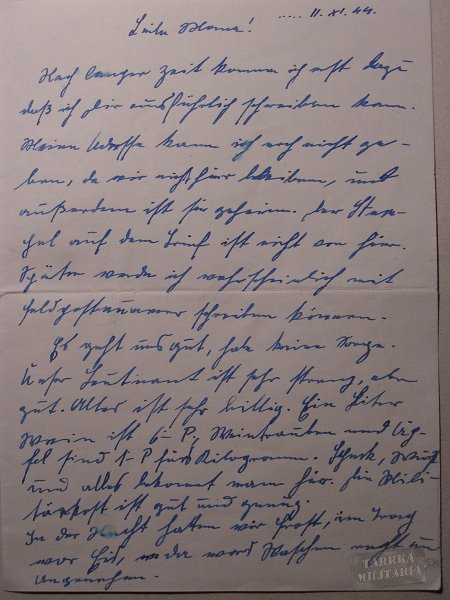 .... 11. XI. 44.
Liebe Mama!
Nach langer Zeit komme ich erst dazu
daß ich Dir ausführlich schreiben kann.
Meine Adresse kann ich noch nicht ge-
ben, da wir nicht hier bleiben, und
außerdem ist sie geheim. Der Stem-
pel auf dem Brief ist nicht von hier.
Später werde ich wahrscheinlich mit
Feldpostnummer schreiben können.
Es geht uns gut, habe keine Sorge.
Unser Leutnant ist sehr streng, aber
gut. Alles ist sehr billig. Ein Liter
Wein ist 6 - P, Weintrauben und Äp-
fel sind 1 - P fürs Kilogramm. Speck, Wurst
und alles bekommt man hier. Die Mili-
tärkost ist gut und genug.
In der Nacht hatten wir Frost, im Trog
war Eis, da ward Waschen recht un
angenehm.
TARRKA
MILITARIA